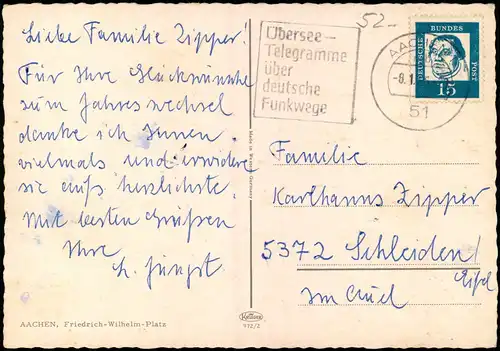 Liebe Familie Zipper!
Für Ihre Glückwünsche
zum Jahreswechsel
danke ich Ihnen
vielmals und erwidere
sie aufs herzlichste.
Mit besten Grüßen
Ihre
h. Jüngst.
AACHEN, Friedrich-Wilhelm-Platz
52-
Übersee-
Telegramme
über
deutsche
Funkwege
AAC
-8.1
51
DEUTSCHE BUNDES POST
15
Familie
Karlhanns Zipper
5372 Schleiden/
Eifel
Im Auel
Made in Western Germany
Krüger
112/2